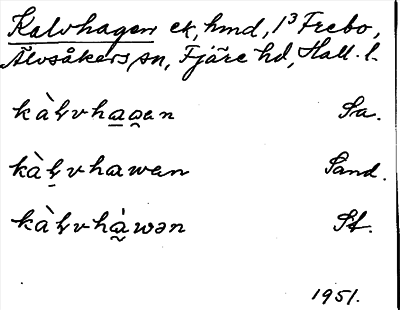 Kalvhagen ek, hmd, 1³ Frebo,
Älvsåkers sn, Fjäre hd, Hall. l.
kàɫvha̲g̰en Sa.
kàɫ̣vhawen Sand.
kàɫvhà̰wən St.
1951.